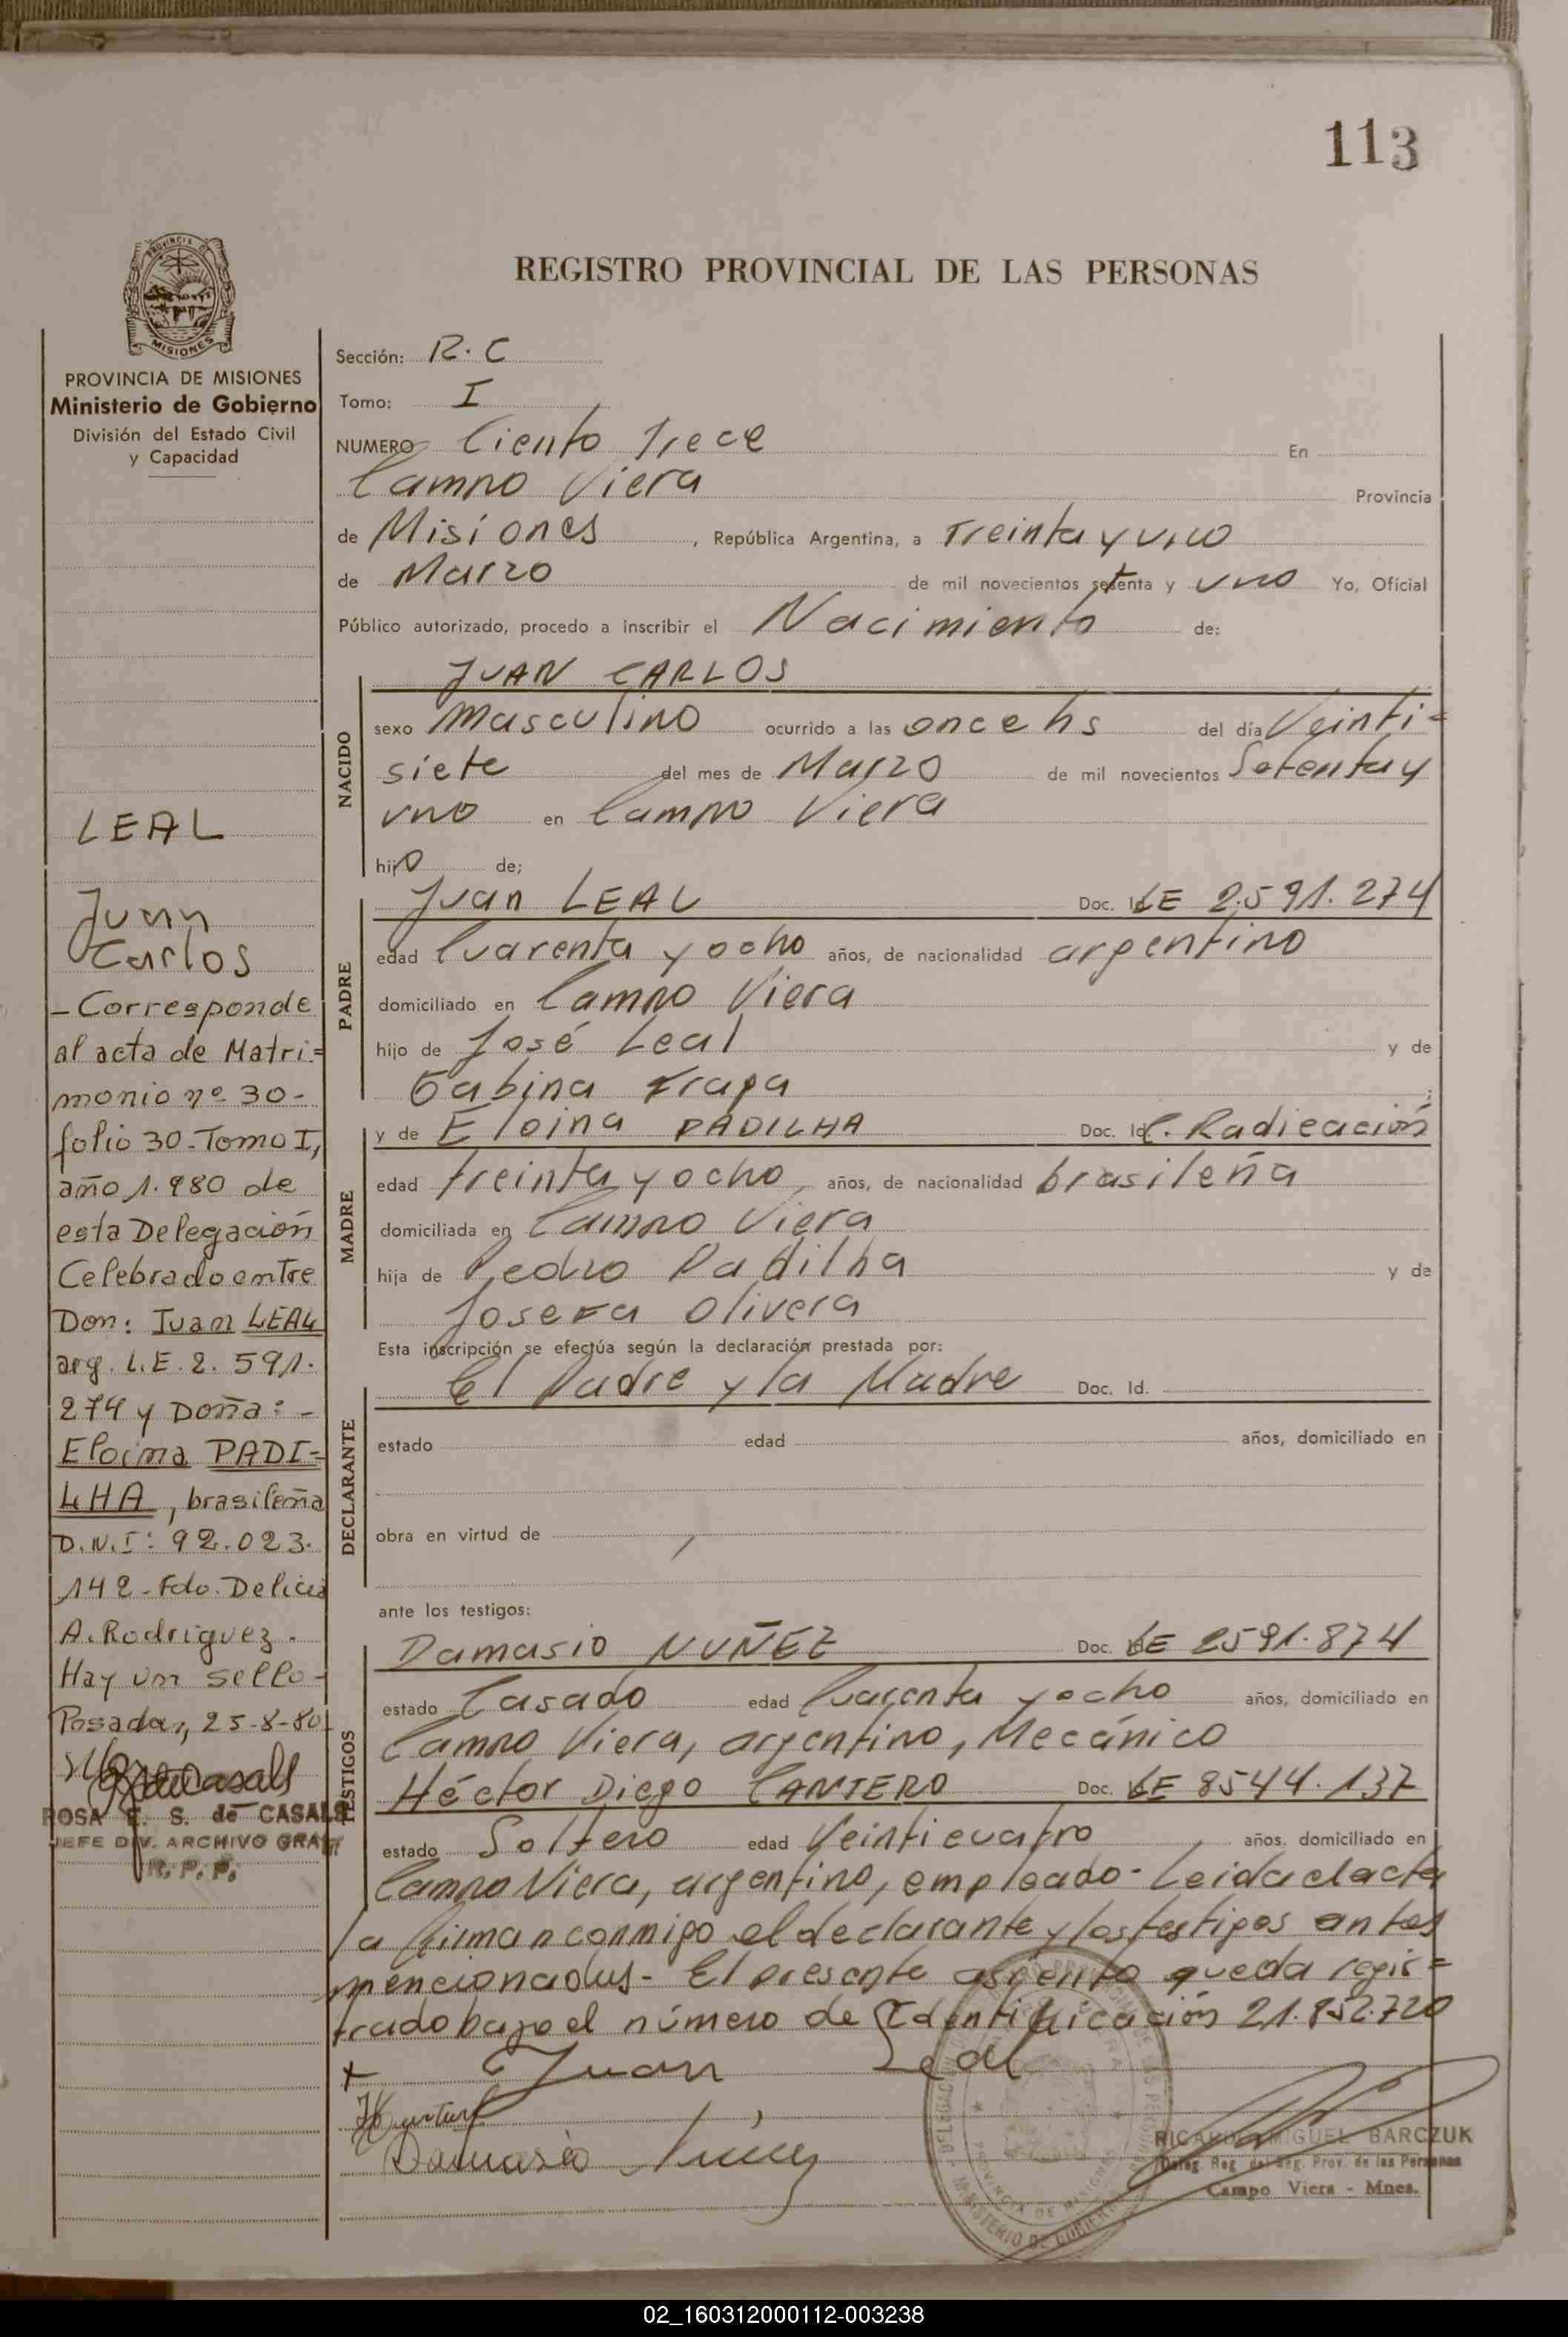 113
REGISTRO PROVINCIAL DE LAS PERSONAS
PROVINCIA DE
MISIONES
PROVINCIA DE MISIONES
Ministerio de Gobierno
División del Estado Civil
y Capacidad
LEAL
Juan
Carlos
- Corresponde
al acta de Matri=
monio nº 30-
folio 30-Tomo I,
año 1.980 de
esta Delegación
Celebrado entre
Don: Juan LEAL
arg. L.E. 2.591.
274 y Doña: -
Eloina PADI=
LHA, brasileña
D.N.I: 92.023.
142-Fdo. Delicia
A. Rodriguez.
Hay un sello-
Posadas, 25-8-80
ROSA E. S. de CASALS
JEFE DIV. ARCHIVO GRAL
R. P. P.
Sección: R.C
Tomo: I
NUMERO Ciento Trece En
Campo Viera Provincia
de Misiones, República Argentina, a Treinta y uno
de Marzo de mil novecientos setenta y uno Yo, Oficial
Público autorizado, procedo a inscribir el Nacimiento de:
NACIDO
JUAN CARLOS
sexo Masculino ocurrido a las once hs del día Veinti=
siete del mes de Marzo de mil novecientos Setenta y
uno en Campo Viera
hijo de;
PADRE
Juan LEAL Doc. Id. LE 2.591.274
edad Cuarenta y ocho años, de nacionalidad argentino
domiciliado en Campo Viera
hijo de José Leal y de
Sabina Fraga ;
MADRE
y de Eloina PADILHA Doc. Id. C. Radicación
edad treinta y ocho, años, de nacionalidad brasileña
domiciliada en Campo Viera
hija de Pedro Padilha y de
Josefa Olivera
Esta inscripción se efectúa según la declaración prestada por:
DECLARANTE
El Padre y la Madre Doc. Id.
estado edad años, domiciliado en
obra en virtud de
ante los testigos:
TESTIGOS
Damasio NUÑEZ Doc. LE 2591.874
estado Casado edad Cuarenta y ocho años, domiciliado en
Campo Viera, argentino, Mecánico
Héctor Diego CANTERO Doc. LE 8544.137
estado Soltero edad Veinticuatro años, domiciliado en
Campo Viera, argentino, empleado- Leida el acta
la firman conmigo el declarante y los testigos antes
mencionados- El presente asiento queda regis=
trado bajo el número de Identificación 21.852.720
+ Juan Leal
Damasio Núñez
MINISTERIO DE GOBIERNO
PROVINCIA DE MISIONES
RICARDO MIGUEL BARCZUK
Deleg. Reg. del Reg. Prov. de las Personas
Campo Viera - Mnes.
02_160312000112-003238